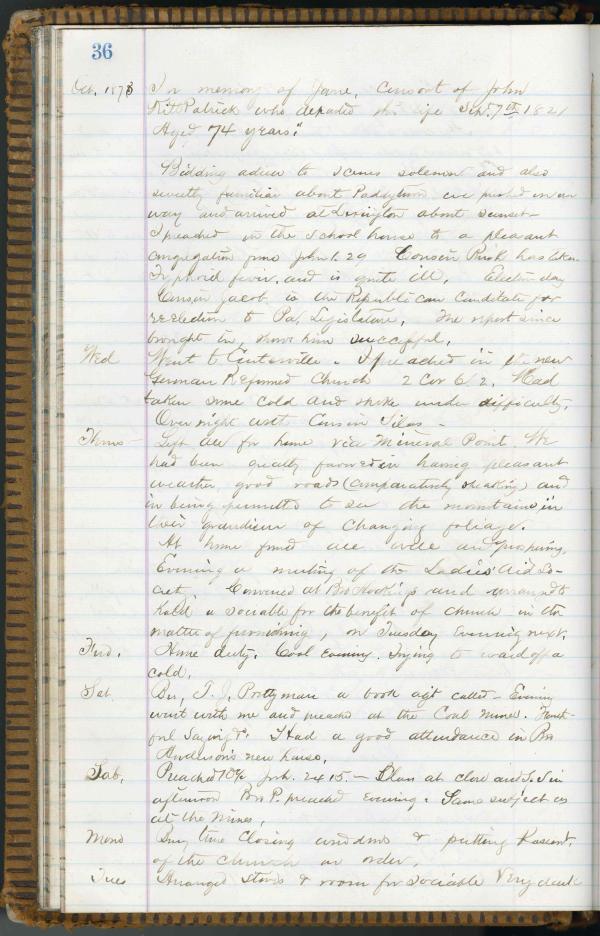 36
Oct. 1878 In memory of Jane, Consort of John
FitzPatrick who departed this life Sept. 7th 1821
Aged 74 years."
Bidding adieu to scenes solemn and also
sweetly familiar about Paddytown we pushed on our
way and arrived at Livington about sunset—
I preached in the school house to a pleasant
congregation from John 1.29 Cousin has taken
Typhoid fever, and is quite ill. Election day
Cousin Jacob is the Republican Candidate for
reelection to Pa. Legislature. The report since
brought in, shows him successful.
Wed Went to Centerville. I preached in the new
German Reformed Church 2 Cor 6/2. Had
taken some cold and spoke under difficulty.
Over night with Cousin Silas—
Thurs— Left for home via Mineral Point. We
had been greatly favored in having pleasant
weather good roads (comparatively speaking) and
in being permitted to see the mountains in
their grandieur of changing foliage.
At home found all well and prospering.
Evening a meeting of the Ladies' Aid So-
ciety. Convened at Bro and arranged to
hold a sociable for the benefit of church—in the
matter of furnishing, on Tuesday Evening next.
Frid. Home duty. Cool Evening. Trying to ward off a
cold.
Sat. Bro. T. J. Prettyman a book agt called— Evening
went with me and preached at the Coal Mines. "Faith-
ful Saying &c". Had a good attendance in Bro
Anderson's new house.
Sab. Preached 10½ Josh. 24.15.— Class at close and S.S in
afternoon Bro P. preached evening. Same subject as
at the Mines.
Mond Busy time closing windows & putting Basemt.
of the church in order.
Tues Arranged Stoves & room for sociable Very dark